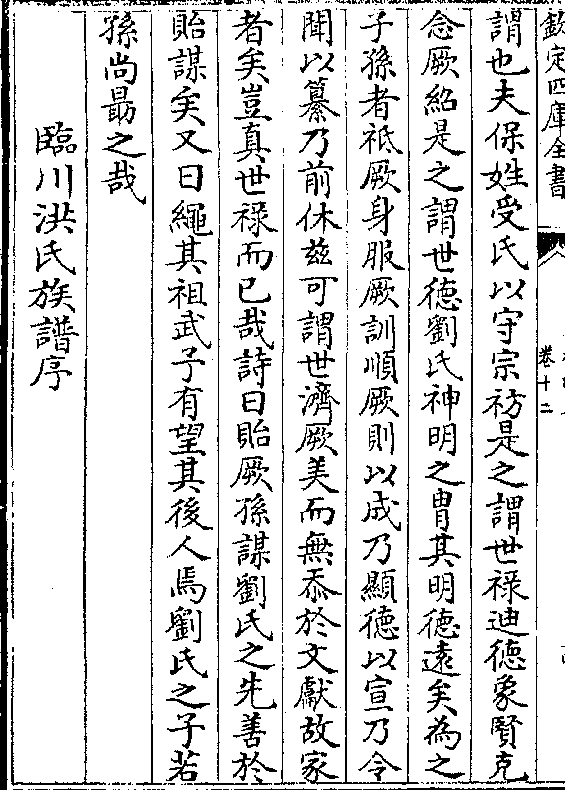 欽定四庫全書
卷十二
謂也夫保姓受氏以守宗祊是之謂世祿迪德象賢克
念厥紹是之謂世德劉氏神明之胄其明德遠矣為之
子孫者祗厥身服厥訓順厥則以成乃顯德以宣乃令
聞以纂乃前休兹可謂世濟厥美而無忝於文獻故家
者矣豈真世祿而已哉詩曰貽厥孫謀劉氏之先善於
貽謀矣又曰繩其祖武予有望其後人焉劉氏之子若
孫尚勗之哉
臨川洪氏族譜序